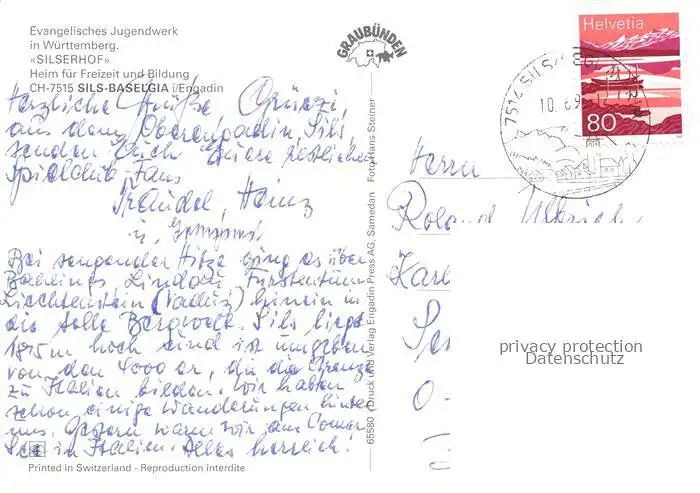 Evangelisches Jugendwerk
in Württemberg.
«SILSERHOF»
Heim für Freizeit und Bildung
CH-7515 SILS-BASELGIA i/Engadin
Herzliche Grüße Grüezi,
aus dem Oberengadin, Sils,
senden Euch Eure restlichen
Spielclub Fans
Traudel, Heinz
u.
Bei sengender Hitze ging es über
Lindau, Fürstentum
Liechtenstein (Vaduz) hinein in
die tolle Bergwelt. Sils liegt
1815 m hoch und ist umgeben
von den 4000 er, die die Grenze
zu Italien bilden. Wir haben
schon einige Wanderungen hinter
uns. Gestern waren wir am Comer
See in Italien. Alles herrlich!
Printed in Switzerland - Reproduction interdite
GRAUBÜNDEN
65580 / Druck und Verlag Engadin Press AG, Samedan Foto Hans Steiner
Helvetia
80
7514 SILS
10. 6. 9
Herrn
Roland
Karl
O-
privacy protection
Datenschutz